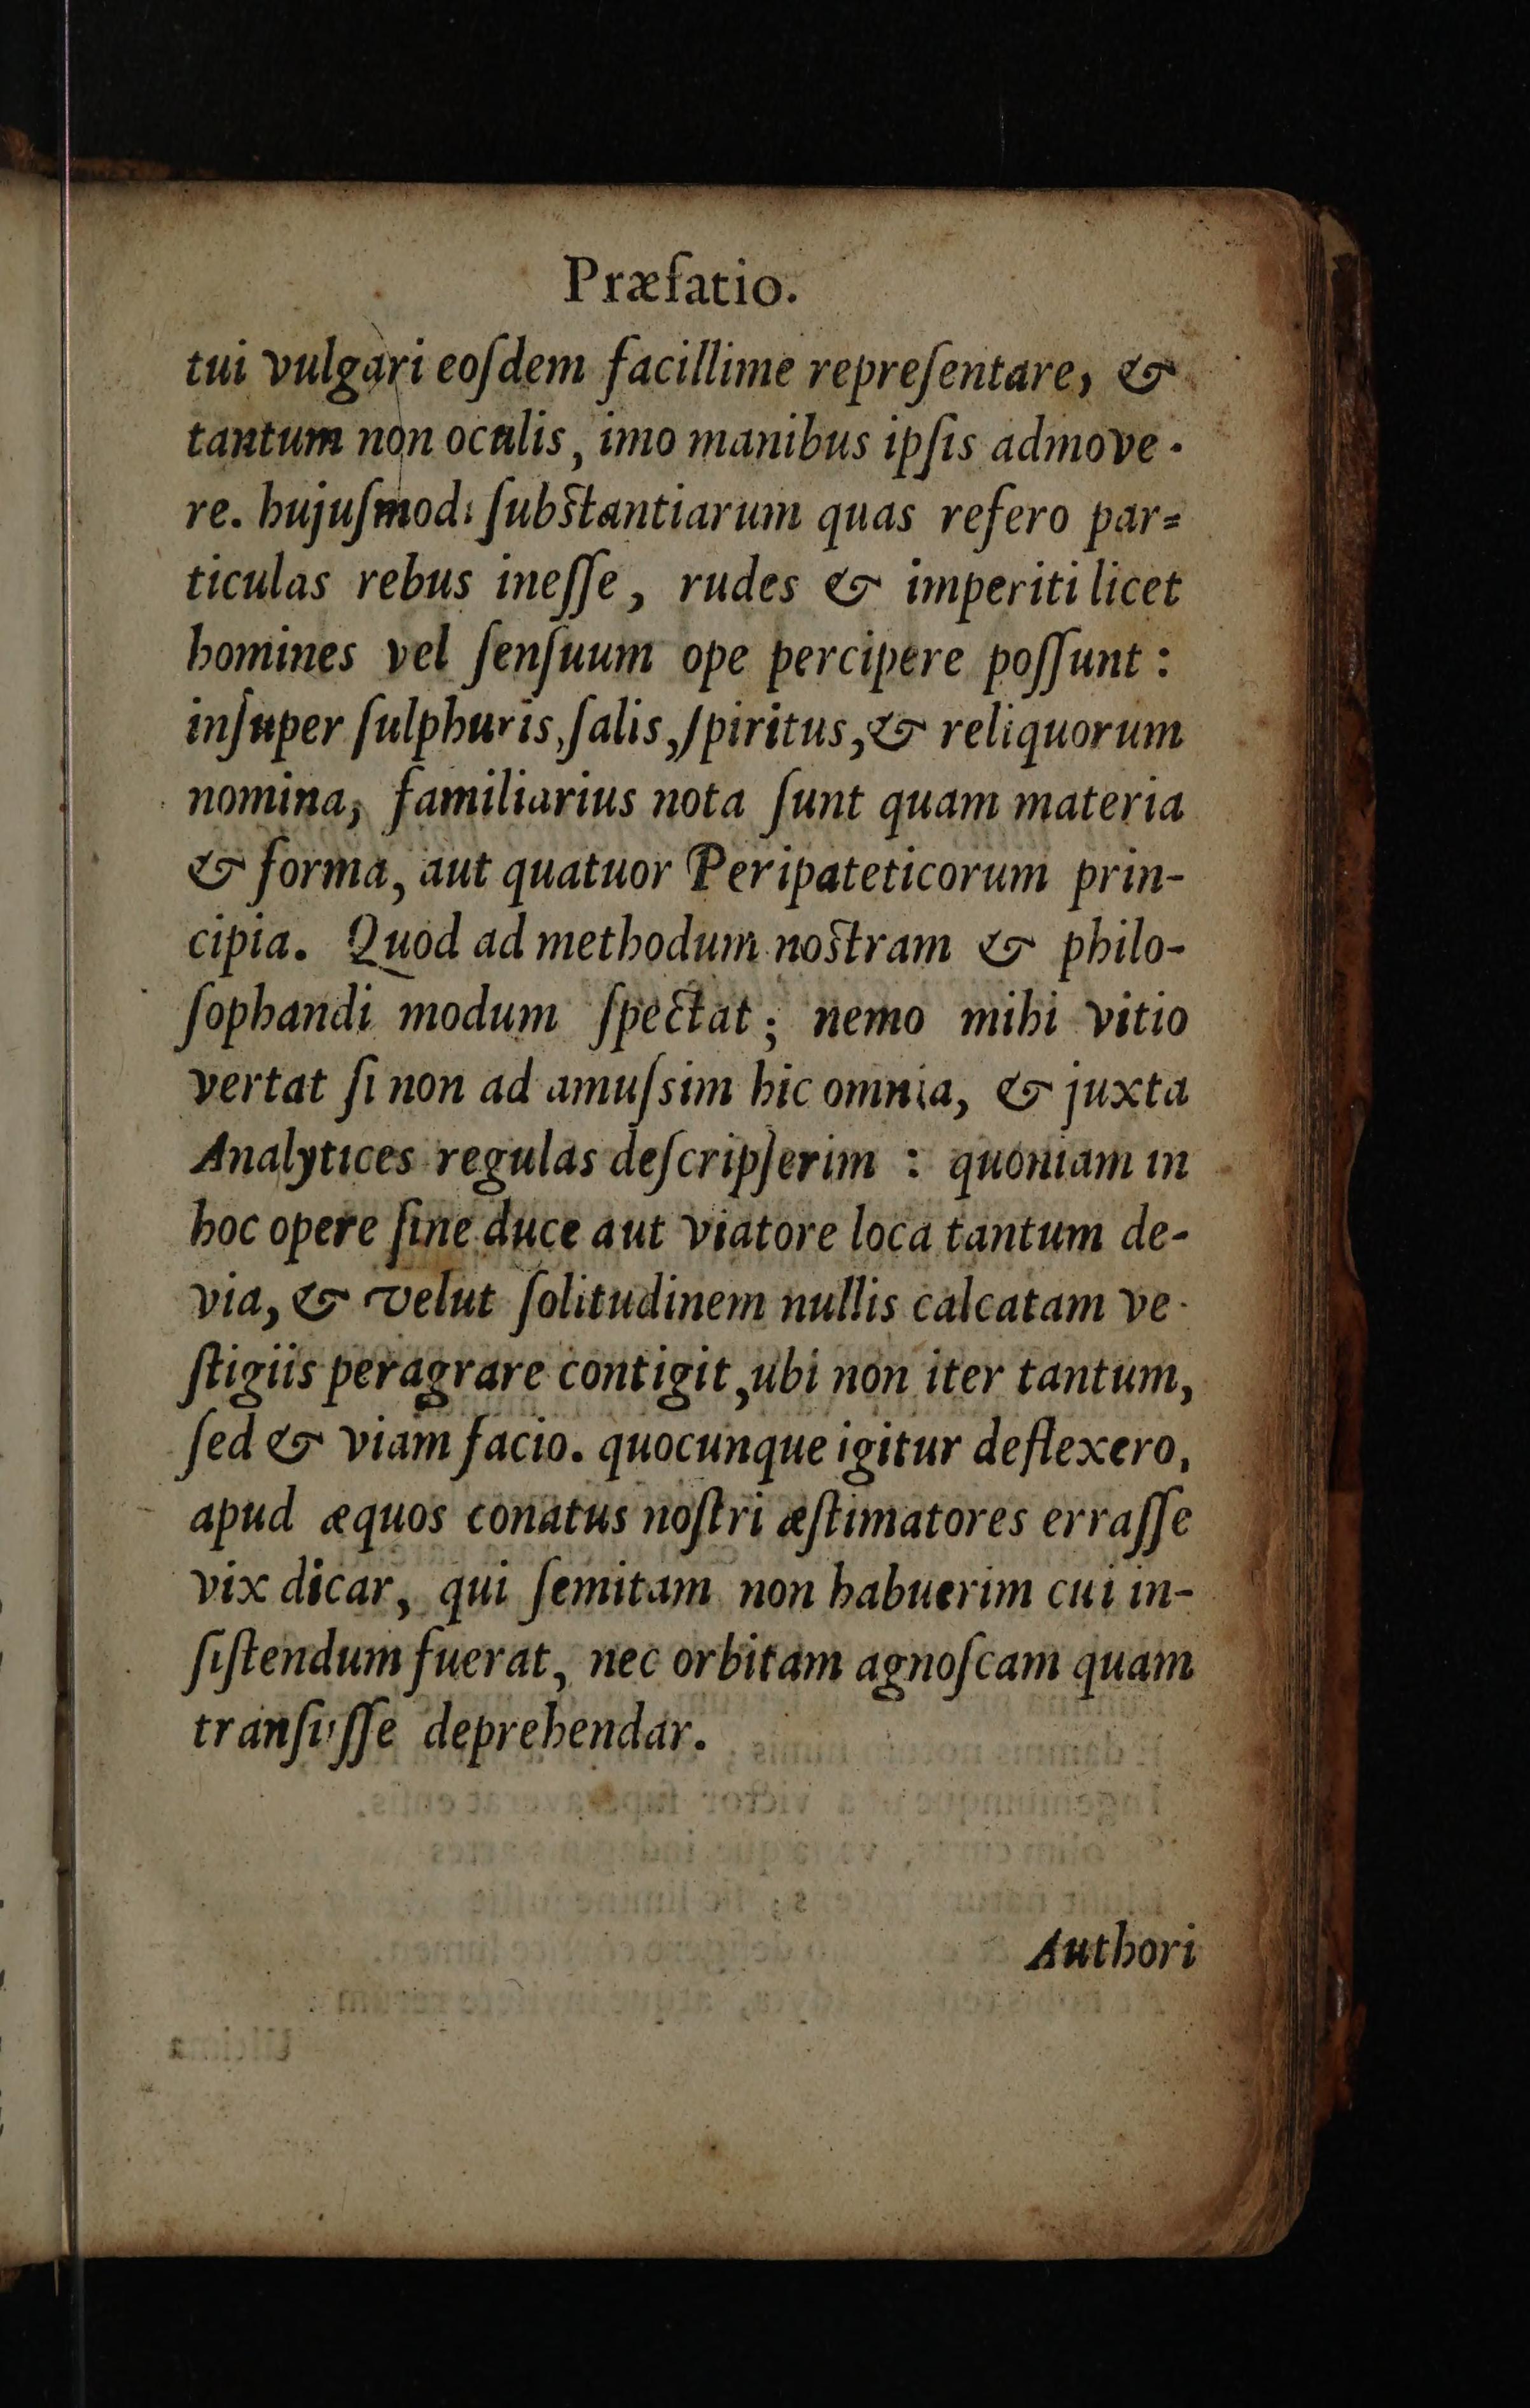 Præfatio.
tui vulgari eoſdem facillime repreſentare, &
tantum non oculis, imo manibus ipſis admove-
re. hujuſmodi ſubſtantiarum quas refero par=
ticulas rebus ineſſe, rudes & imperiti licet
homines vel ſenſuum ope percipere poſſunt :
inſuper ſulphuris, ſalis, ſpiritus, & reliquorum
nomina, familiarius nota ſunt quam materia
& forma, aut quatuor Peripateticorum prin-
cipia. Quod ad methodum noſtram & philo-
ſophandi modum ſpectat ; nemo mihi vitio
vertat ſi non ad amuſsim hic omnia, & juxta
Analytices regulas deſcripſerim : quoniam in
hoc opere ſine duce aut viatore loca tantum de-
via, & velut ſolitudinem nullis calcatam ve-
ſtigiis peragrare contigit, ubi non iter tantum,
ſed & viam facio. quocunque igitur deflexero,
apud æquos conatus noſtri æſtimatores erraſſe
vix dicar, qui ſemitam non habuerim cui in-
ſiſtendum fuerat, nec orbitam agnoſcam quam
tranſiiſſe deprehendar.
Authori